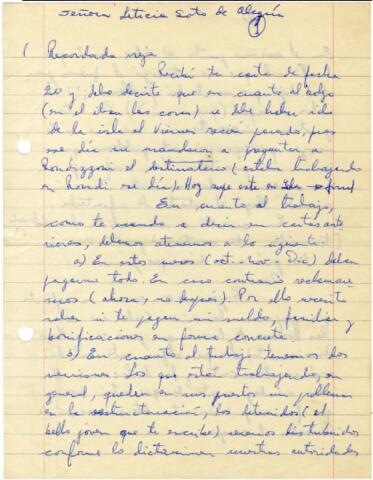 Señora Leticia Soto de Alegría
1
1 Recordada vieja
Recibí tu carta de fecha
20 y debo decirte que en cuanto al bolso
(en el iban las cosas) se debe haber ido
de la isla el Viernes recién pasado, pues
ese día me mandaron a preguntar a
Rondizzoni el destinatario (estaba trabajando
en Rondi ese día). Hoy supe
En cuanto al trabajo,
como te mando a decir en cartas ante
riores, debemos atenernos a lo siguiente:
a) En estos meses (oct.-Nov-Dic) deben
pagarme todo. En caso contrario reclamare
mos (ahora, no después). Por ello necesito
saber si te pagan mi sueldo, familiar y
bonificaciones en forma correcta.
b) En cuanto al trabajo tenemos dos
versiones: Los que están trabajando, en
general, quedan en sus puestos sin problemas
en la reestructuración, los detenidos (el
bello joven que te escribe) seremos distribuidos
conforme lo dictaminen nuestras autoridades